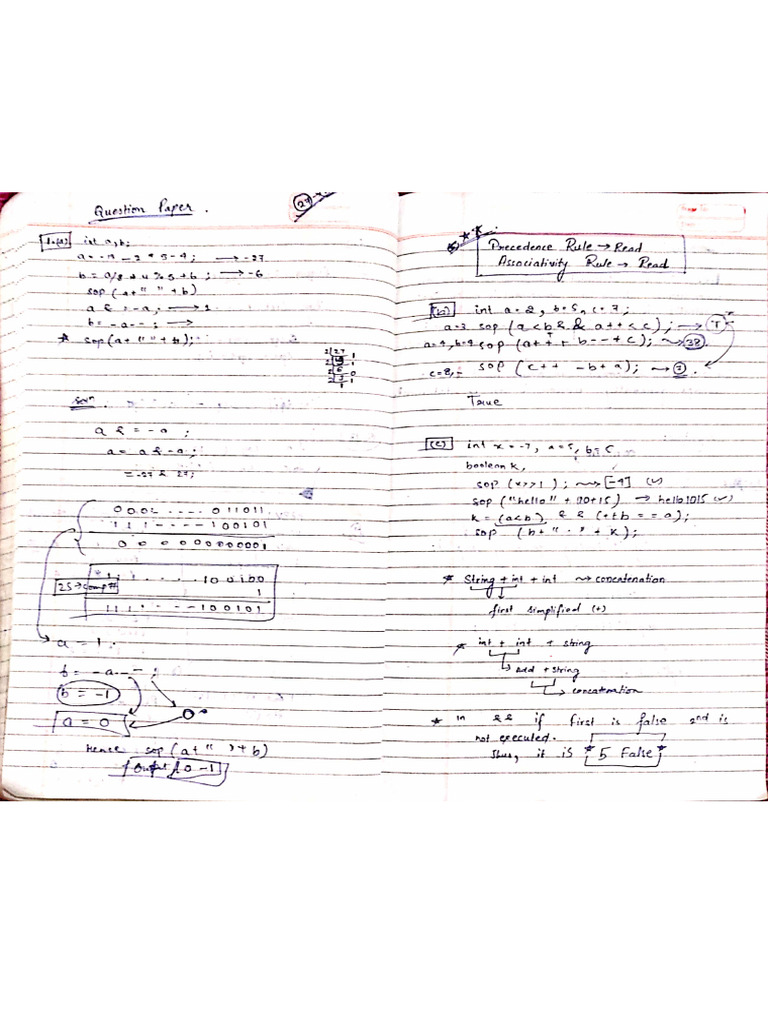 Question Paper .
27
1.(a) int a,b;
a = -9 - 2 * 5 - 4; → -27
b = a/8 + 4 % 5 + b ; → -6
sop (a+" "+b)
a & = -a; → 1
b = -a--; →
* sop(a+" "+b);
2 27 1
Soln
a & = -a ;
a = a & -a ;
= -27 & 27;
000 - - - - 011011
111 - - - - 100101
0 0 0 00000001
1 1 - - - - 100100
1
2S → comp
111 - - - - 100101
a = 1 .
b = -a-- ;
b = -1
a = 0
Hence sop (a+" "+b)
Output 0 -1
* Precedence Rule → Read
Associativity Rule → Read
(b) int a=2, b=5, c=7;
a=3 sop (a<b && a++<c); → T
a=4, b=4 sop (a++ + b-- + c);
c=8, sop (c++ -b+a);
True
(c) int x=-7, a=5, b=5
boolean k,
sop (x>>1) ; → [-4] (✓)
sop ("hello" + 10+15) → hello1015 (✓)
k = (a<b) && (++b == a);
sop (b+" "+k);
* String + int + int → concatenation
first simplified (+)
* int + int + string
add + string
concatenation
* In && if first is false 2nd is
not executed.
Thus, it is * 5 False *